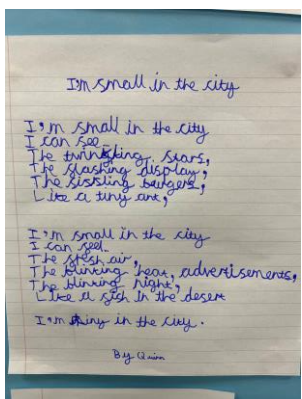 I'm small in the city
I'm small in the city
I can see
The twinkling stars,
The flashing display,
The sissling burgers,
Like a tiny ant,
I'm small in the city
I can see..
The fresh air,
The blinking heat, advertisements,
The blinking night,
Like a fish in the desert
I'm tiny in the city.
By Quinn